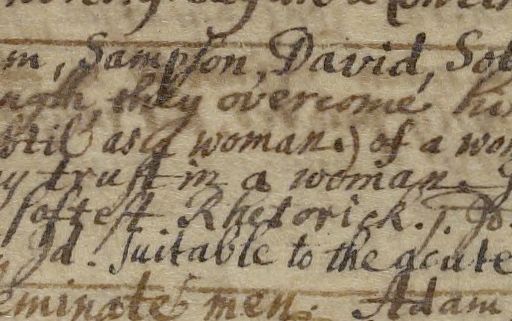 m, Sampson, David, Sol
ugh, they overcome hi
stil as a woman.) of a wom
y trust in a woman.
softest Rhetorick.
Id. Suitable to the acute
eminate men. Adam